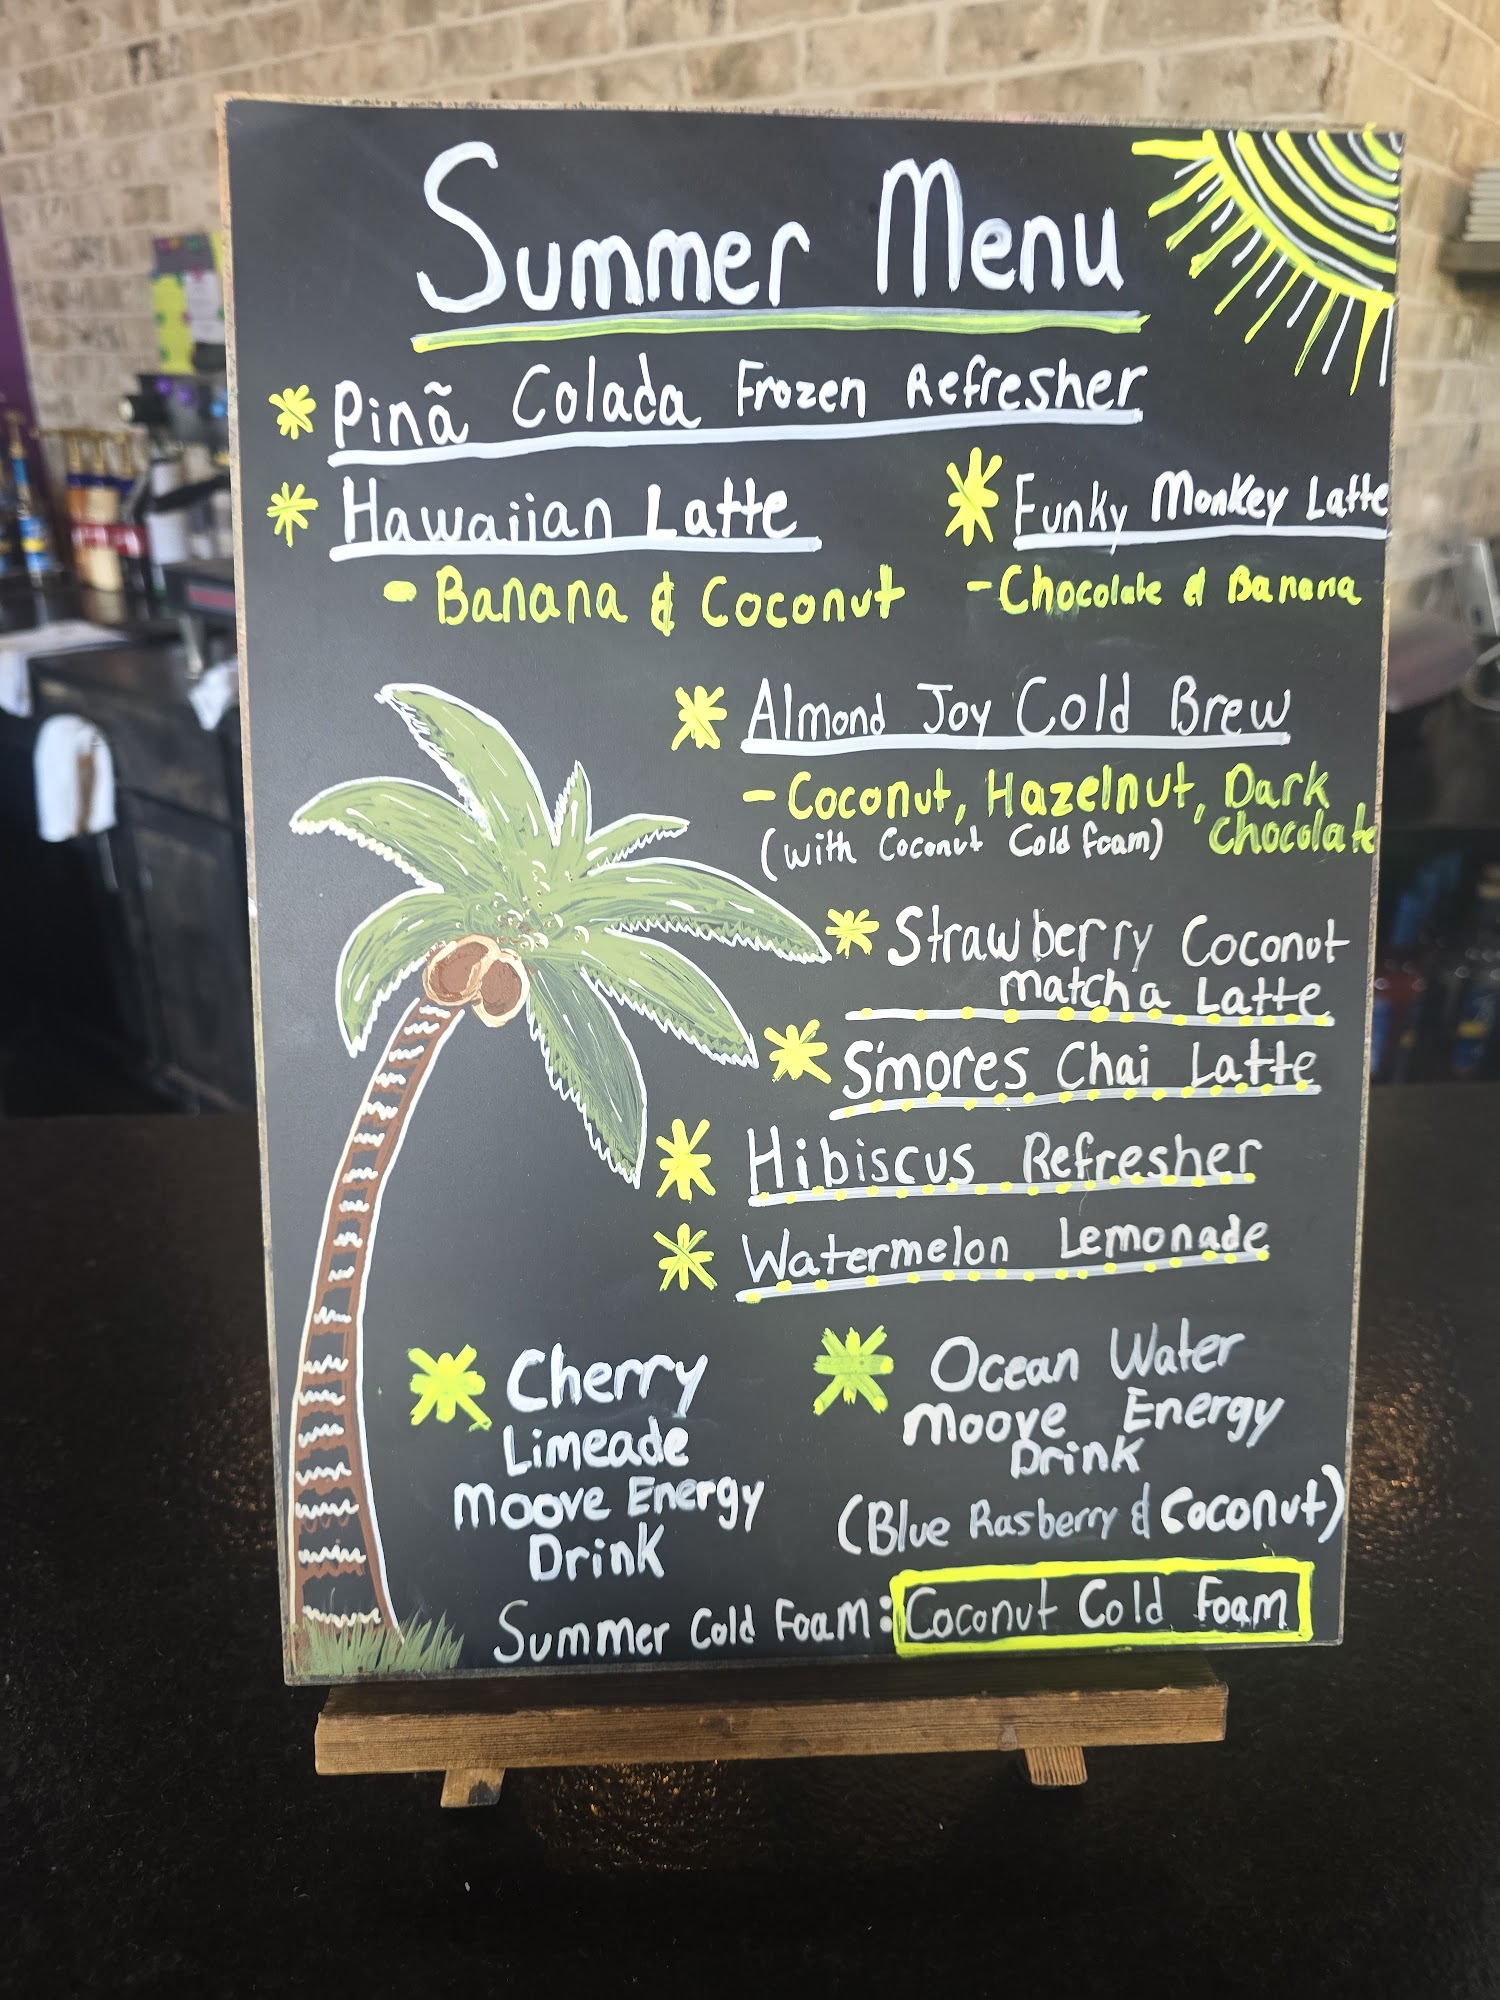 Summer Menu
Pinã Colada Frozen Refresher
Hawaiian Latte
- Banana & Coconut
Funky Monkey Latte
- Chocolate & Banana
Almond Joy Cold Brew
- Coconut, Hazelnut, Dark
(with Coconut Cold foam) Chocolate
Strawberry Coconut
Matcha Latte
S'mores Chai Latte
Hibiscus Refresher
Watermelon Lemonade
Cherry
Limeade
Moove Energy
Drink
Ocean Water
Moove Energy
Drink
(Blue Rasberry & Coconut)
Summer Cold Foam: Coconut Cold Foam